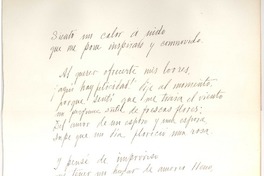 Siento un calor de nido
que me pone inspirado y conmovido.
Al querer ofrecerte mis loores,
¡aquí hay felicidad! dije al momento,
porque sentí que me traía el viento
un perfume sutil de frescas flores;
del amor de un esposo y una esposa,
supe que un día florecía una rosa.
Y pensé de improviso
en tener un hogar de nuevo